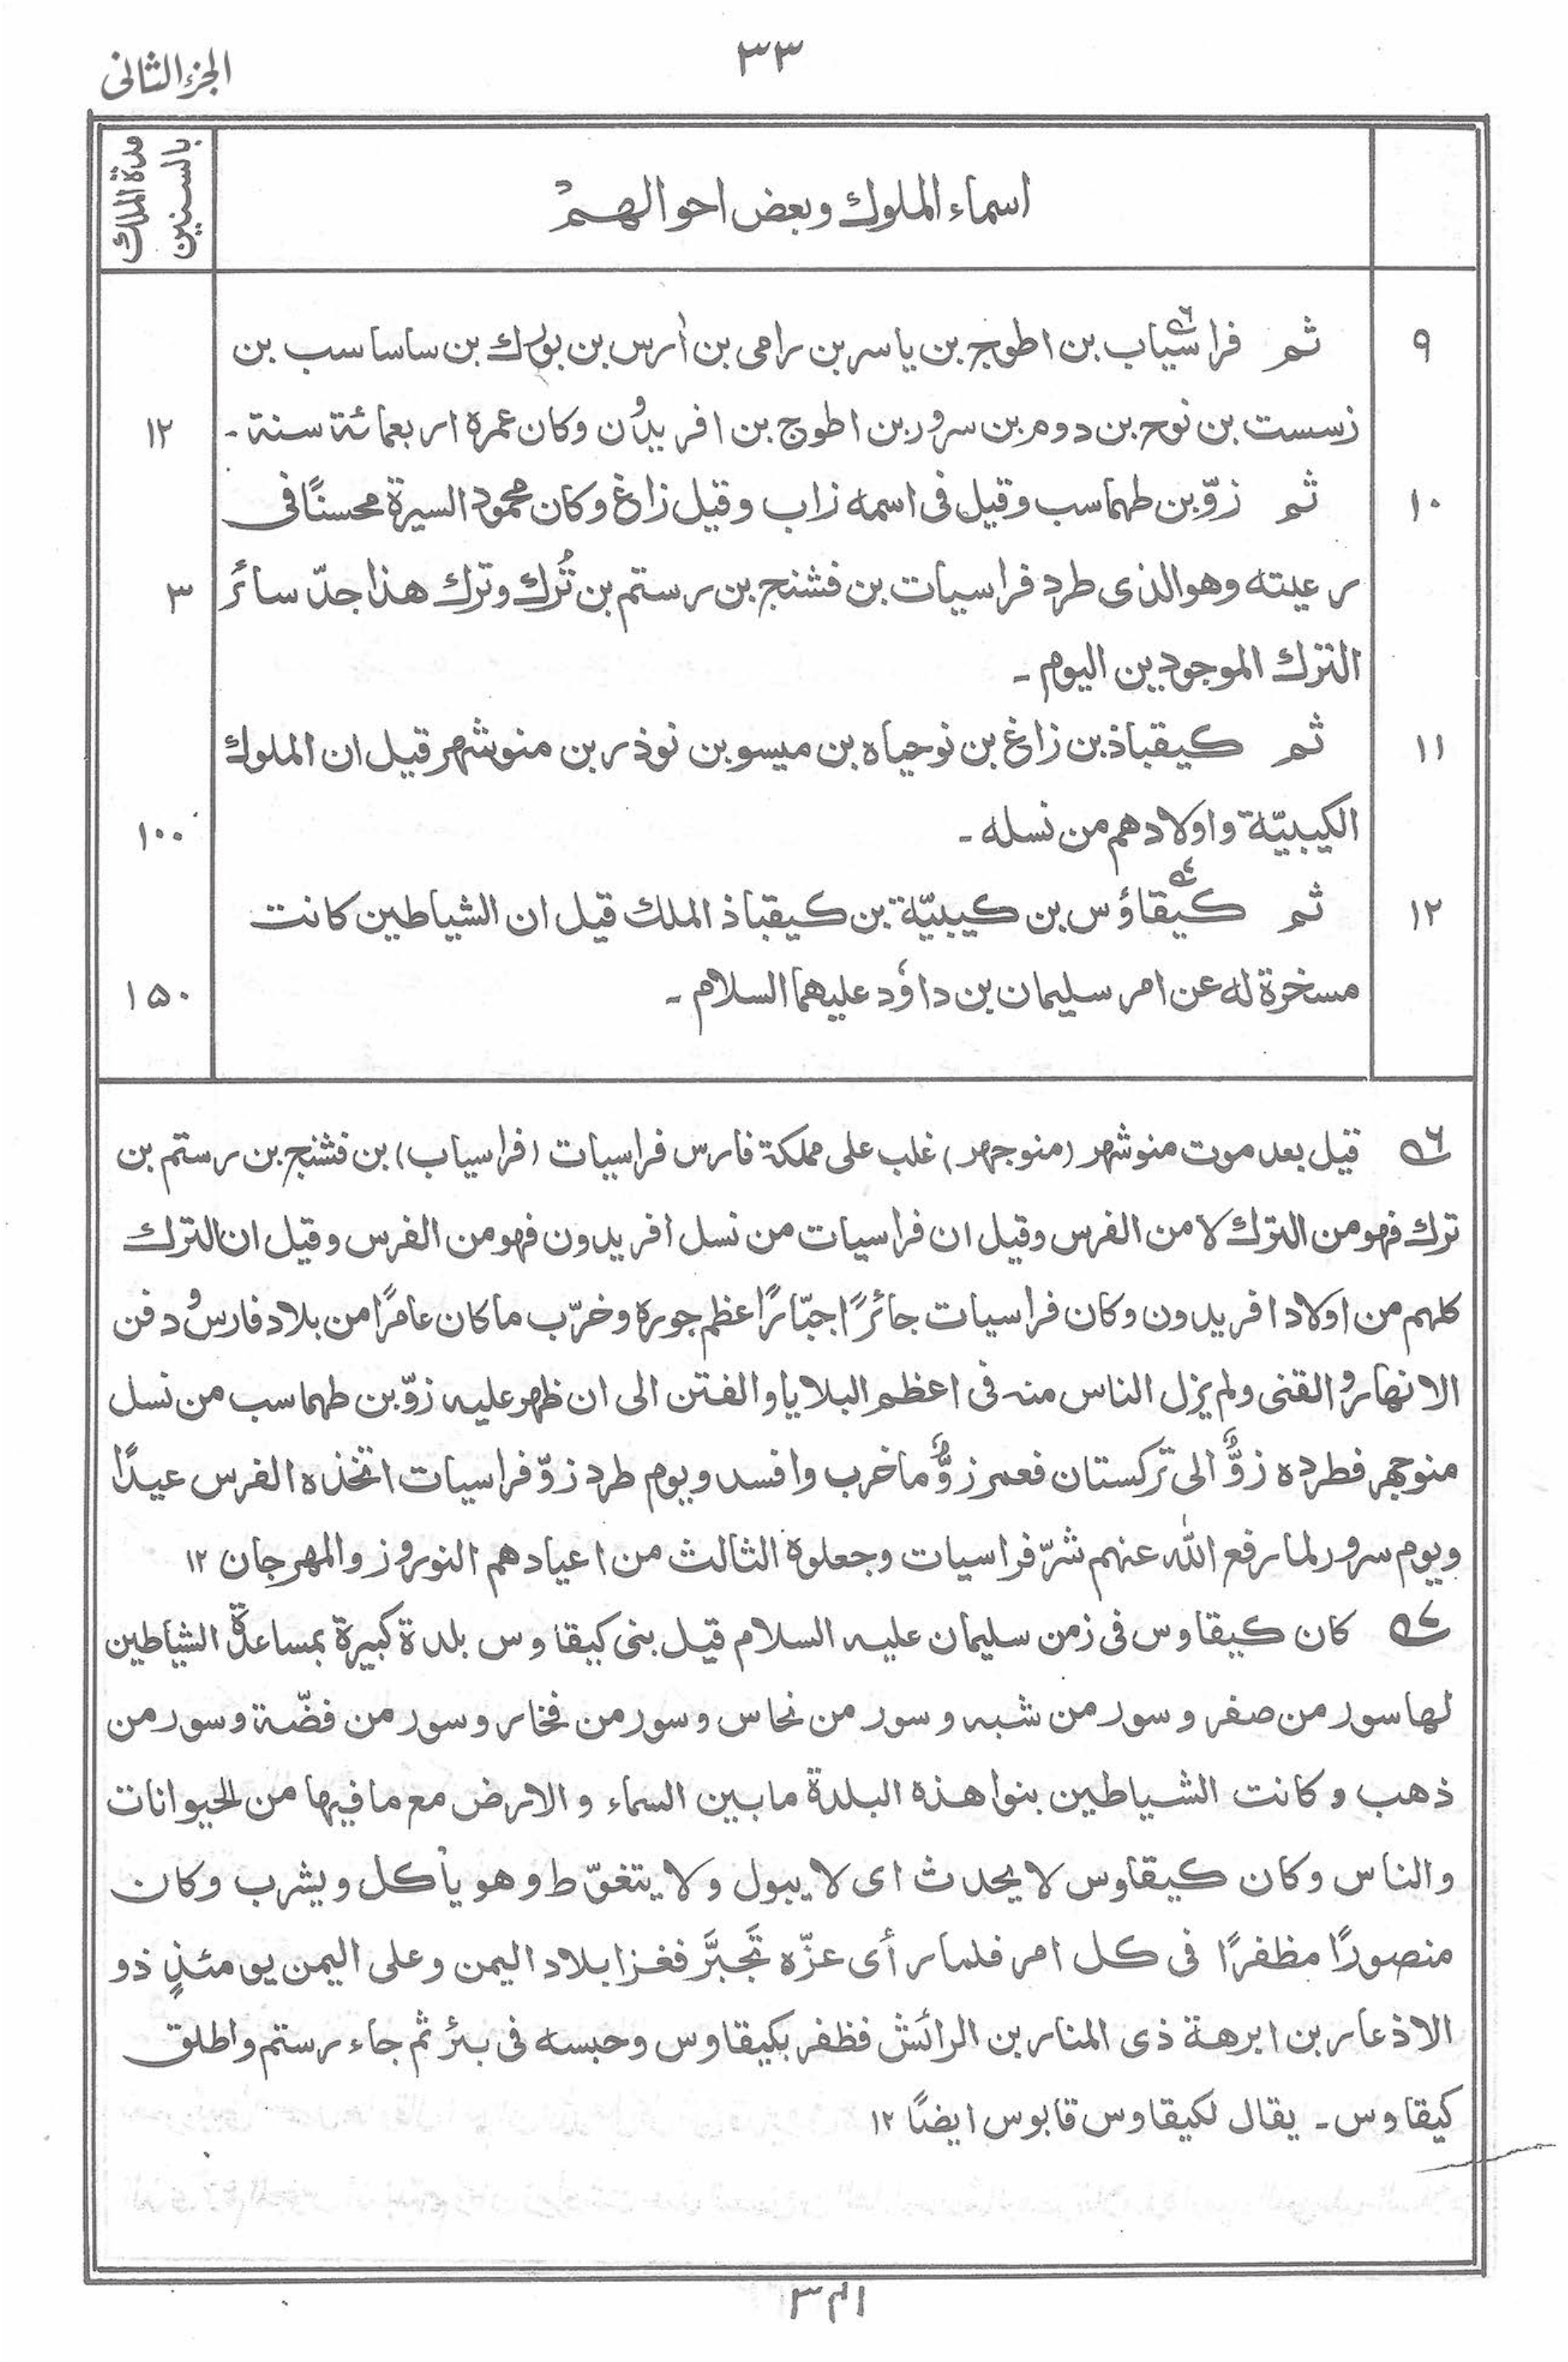 ٣٣
الجزء الثانی
اسماء الملوك وبعض احوالهم
مدة الملك
بالسنین
٩ ثم فراسیاب بن اطوج بن یاسر بن رامی بن أرس بن بورك بن ساساسب بن
زسست بن نوح بن دوم بن سرور بن اطوج بن افریدون وکان عمره اربعمائة سنة ۔ ١٢
١٠ ثم زوّ بن طهماسب وقیل فی اسمه زاب وقیل زاغ وکان محمود السیرة محسنًا فی
رعیته وهو الذی طرد فراسیات بن فشنج بن رستم بن تُرك وترك هذا جدّ سائر ٣
الترك الموجودین الیوم ۔
١١ ثم کیقباذ بن زاغ بن نوحیاه بن میسو بن نوذر بن منوشهر قیل ان الملوك
الکیبیّة واولادهم من نسله ۔ ١٠٠
١٢ ثم کیقاؤس بن کیبیّة بن کیقباذ الملك قیل ان الشیاطین کانت
مسخرة له عن امر سلیمان بن داوٗد علیهما السلام ۔ ١٥٠
٦ قیل بعد موت منوشهر (منوجهر) غلب علی مملکة فارس فراسیات (فراسیاب) بن فشنج بن رستم بن
ترك فهو من الترك لا من الفرس وقیل ان فراسیات من نسل افریدون فهو من الفرس وقیل ان الترك
کلهم من اولاد افریدون وکان فراسیات جائرًا جبّارًا عظم جوره وخرّب ما کان عامرًا من بلاد فارس و دفن
الانهار والقنی ولم یزل الناس منه فی اعظم البلایا والفتن الی ان ظهر علیه زوّ بن طهماسب من نسل
منوجهر فطرده زوٌّ الی ترکستان فعمر زوٌّ ما خرب وافسد ویوم طرد زوّ فراسیات اتخذه الفرس عیدًا
ویوم سرور لما رفع الله عنهم شرّ فراسیات وجعلوه الثالث من اعیادهم النوروز والمهرجان ١٢
٧ کان کیقاوس فی زمن سلیمان علیه السلام قیل بنی کیقاوس بلدة کبیرة بمساعدة الشیاطین
لها سور من صفر وسور من شبه وسور من نحاس وسور من فخار وسور من فضّة وسور من
ذهب وکانت الشیاطین بنوا هذه البلدة ما بین السماء والارض مع ما فیها من الحیوانات
والناس وکان کیقاوس لا یحدث ای لا یبول ولا یتغوّط وهو یأکل ویشرب وکان
منصورًا مظفرًا فی کل امر فلما رأی عزّه تَجبَّر فغزا بلاد الیمن وعلی الیمن یومئذٍ ذو
الاذعار بن ابرهة ذی المنار بن الرائش فظفر بکیقاوس وحبسه فی بئر ثم جاء رستم واطلق
کیقاوس ۔ یقال لکیقاوس قابوس ایضًا ١٢